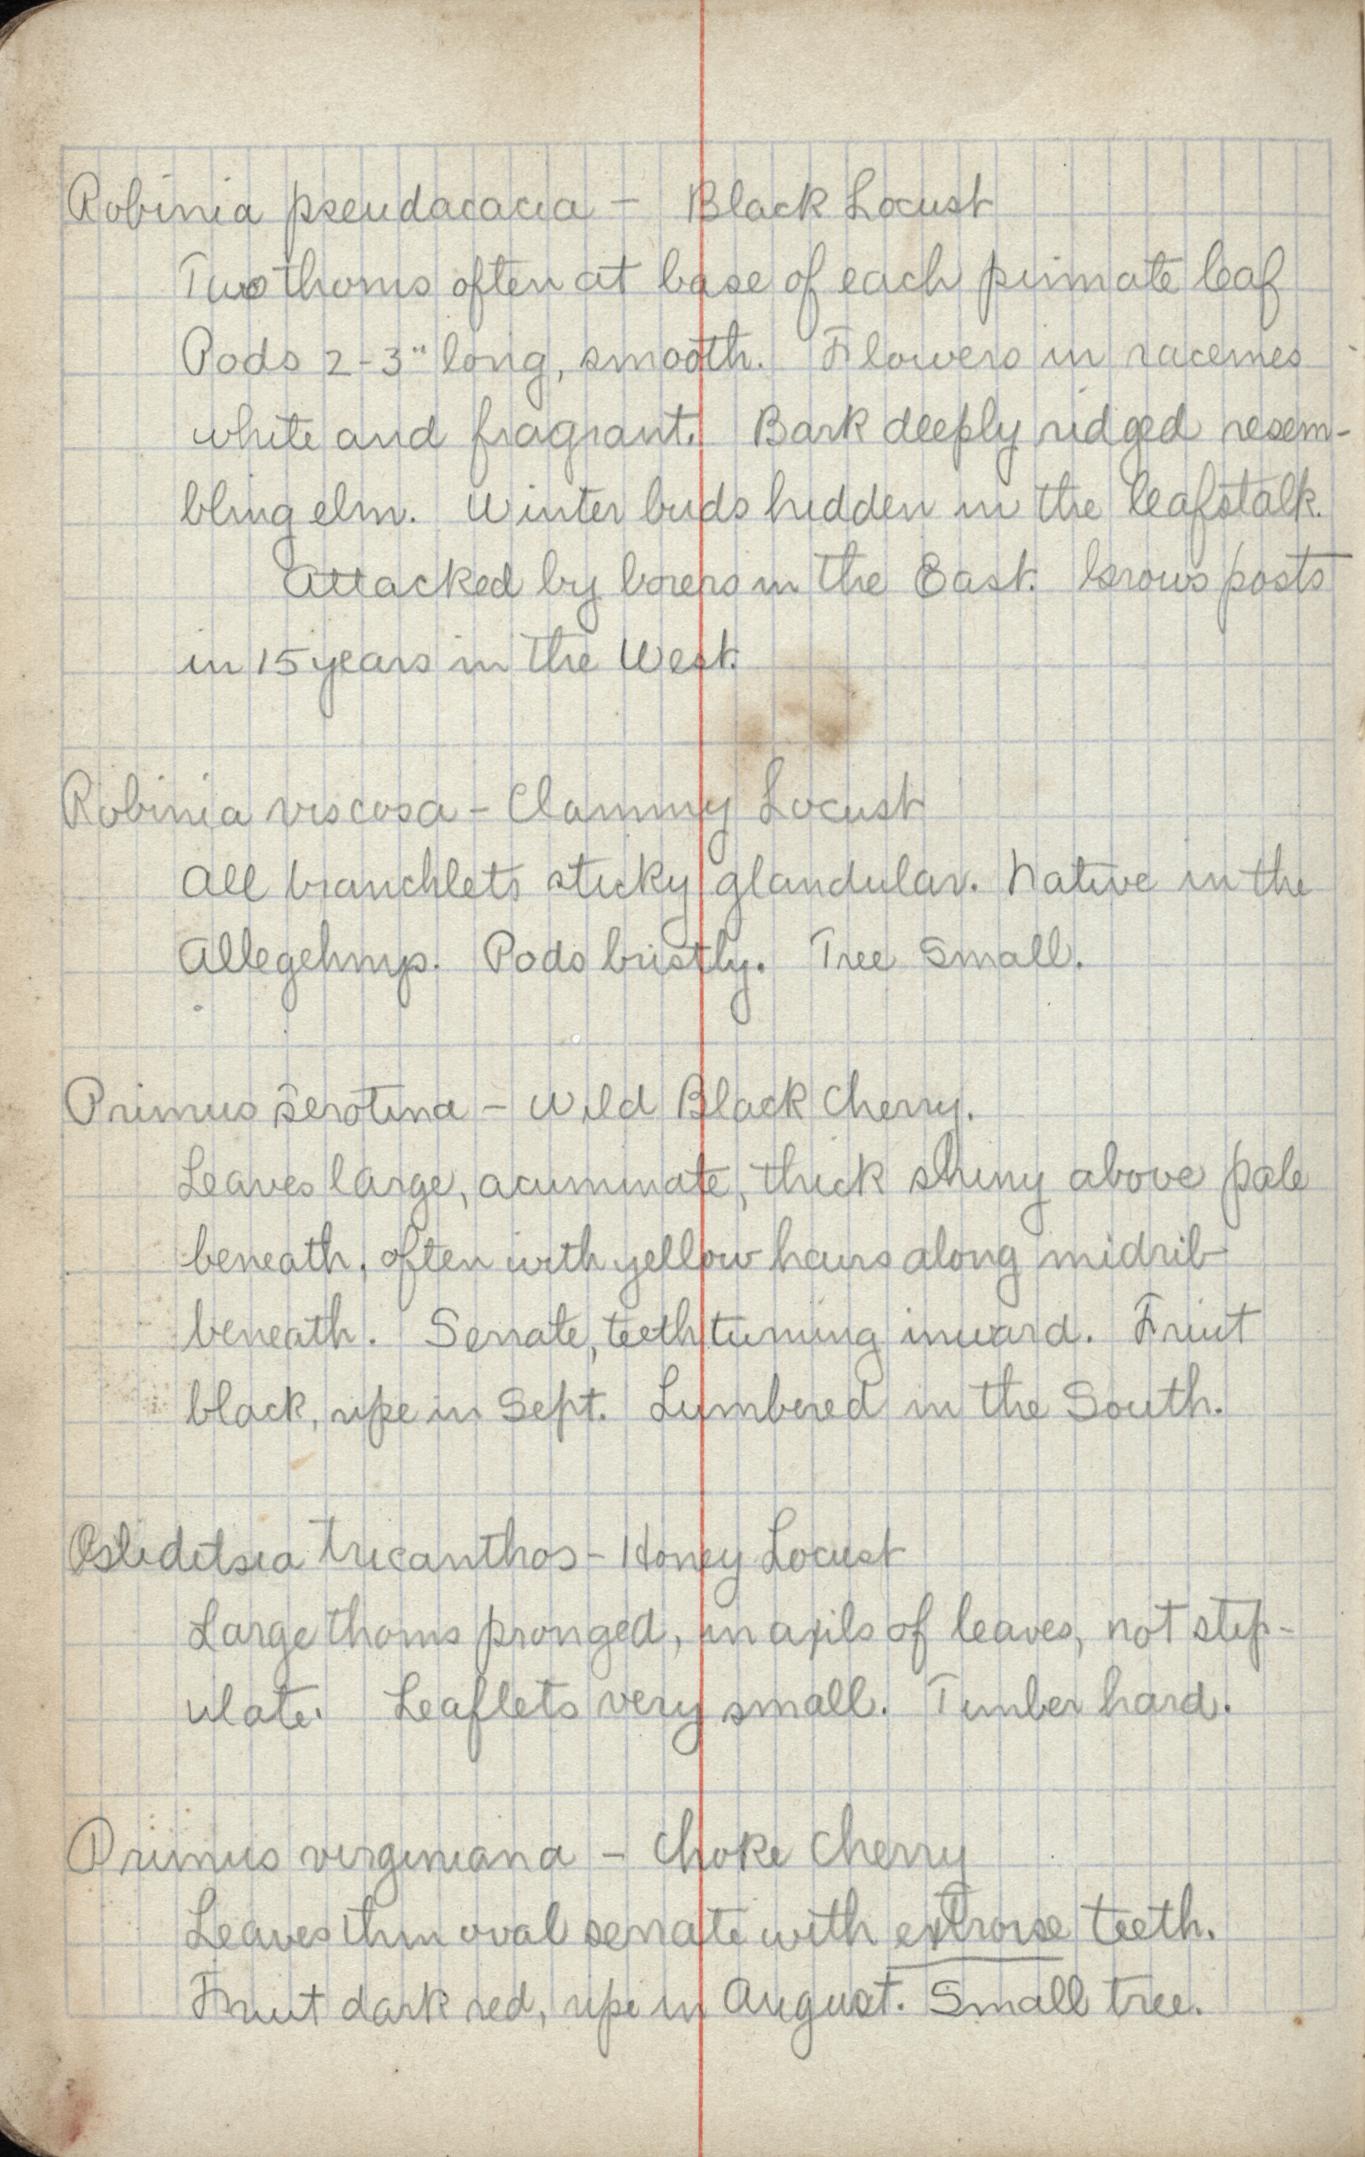 Robinia pseudacacia - Black Locust
Two thorns often at base of each pinnate leaf
Pods 2-3" long, smooth. Flowers in racemes
white and fragrant. Bark deeply ridged resem-
bling elm. Winter buds hidden in the leafstalk.
Attacked by borers in the East. Grows posts
in 15 years in the West.
Robinia viscosa - Clammy Locust
All branchlets sticky glandular. Native in the
Alleghenys. Pods bristly. Tree small.
Prunus serotina - Wild Black Cherry.
Leaves large, acuminate, thick shiny above pale
beneath, often with yellow hairs along midrib
beneath. Serrate, teeth turning inward. Fruit
black, ripe in Sept. Lumbered in the South.
Gleditsia tricanthos - Honey Locust
Large thorns pronged, in axils of leaves, not stip-
ulate. Leaflets very small. Timber hard.
Prunus virginiana - Choke Cherry
Leaves thin oval serrate with extrorse teeth.
Fruit dark red, ripe in August. Small tree.